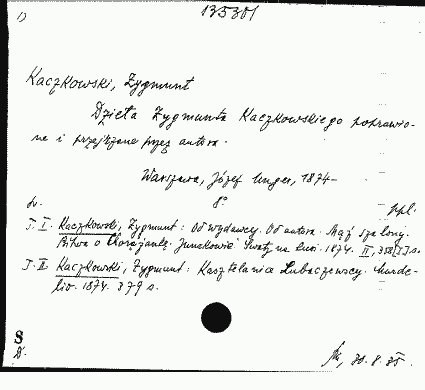 1) 135301
Kaczkowski, Zygmunt
Dzieła Zygmunta Kaczkowskiego poprawio-
ne i przejrzane przez autora.
Warszawa, Józef Unger, 1874-
8°
T. I. Kaczkowski, Zygmunt: Od wydawcy. Od autora. Mąż szalony.
Bitwa o Chorążankę. Junakowie. Swaty na Rusi. 1874. II, 358 s.
T. II Kaczkowski, Zygmunt: Kasztelanice Lubaczewscy. Murde-
lio. 1874. 379 s.
S
D. 30.8.85.